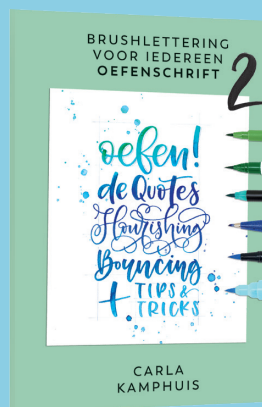 BRUSHLETTERING
VOOR IEDEREEN
OEFENSCHRIFT 2
oefen!
de Quotes
Flourishing
Bouncing
+ TIPS &
TRICKS
CARLA
KAMPHUIS